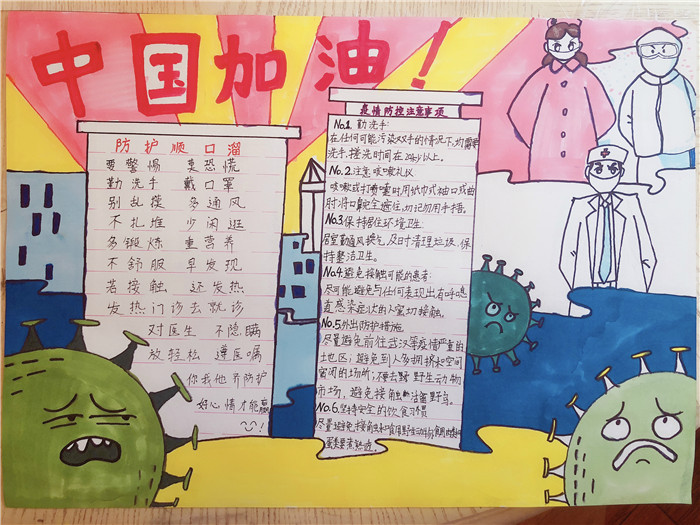 中国加油！
防护顺口溜
要警惕 莫恐慌
勤洗手 戴口罩
别乱摸 多通风
不扎堆 少闲逛
多锻炼 重营养
不舒服 早发现
若接触 还发热
发热门诊去就诊
对医生 不隐瞒
放轻松 遵医嘱
你我他 齐防护
好心情才能赢!
疫情防控注意事项
No.1 勤洗手:
在任何可能污染双手的情况下,均需要
洗手,搓洗时间在20秒以上。
No.2 注意咳嗽礼仪
咳嗽或打喷嚏时用纸巾或袖口或曲
肘将口鼻完全遮住,切记勿用手捂。
No.3 保持居住环境卫生:
居室勤通风换气,及时清理垃圾,保
持整洁卫生。
No.4 避免接触可能的患者:
尽可能避免与任何表现出有呼吸
道感染症状的人密切接触。
No.5 外出防护措施
尽量避免前往武汉等疫情严重的
地区;避免到人多拥挤和空间
密闭的场所;不要去野生动物
市场,避免接触禽野鸟。
No.6 坚持安全的饮食习惯
尽量避免接触和食用野生动物,食用肉类和
蛋类要煮熟。